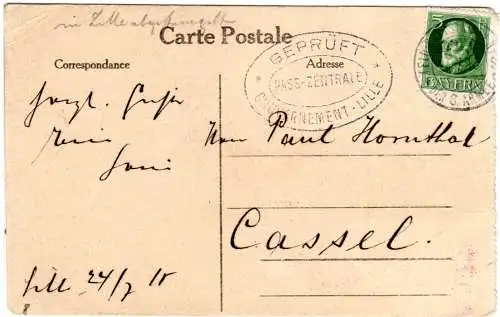 in Lille abgestempelt
Carte Postale
Correspondance
Adresse
GEPRÜFT
PASS-ZENTRALE
GOUVERNEMENT-LILLE
5
BAYERN
herzl. Grüße
Herrn Paul Hornthal
Cassel.
Lille 24/7 15